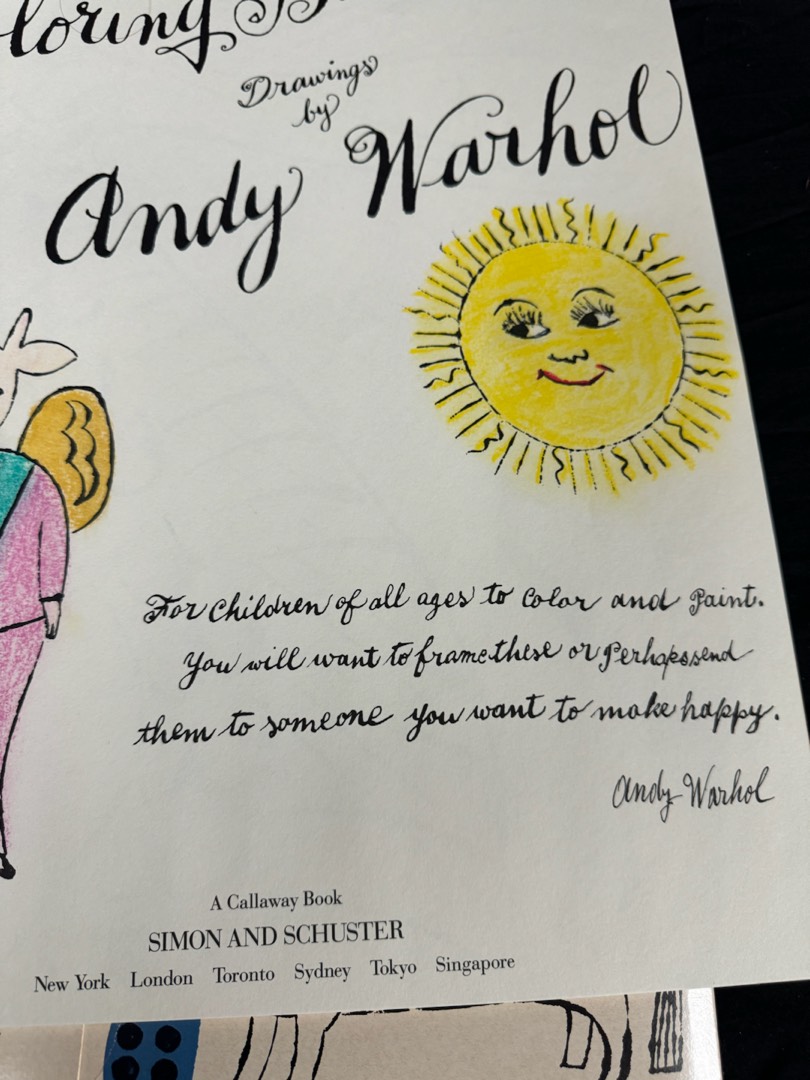 Drawings
by
Andy Warhol
For Children of all ages to Color and Paint.
You will want to frame these or Perhaps send
them to someone you want to make happy.
Andy Warhol
A Callaway Book
SIMON AND SCHUSTER
New York London Toronto Sydney Tokyo Singapore